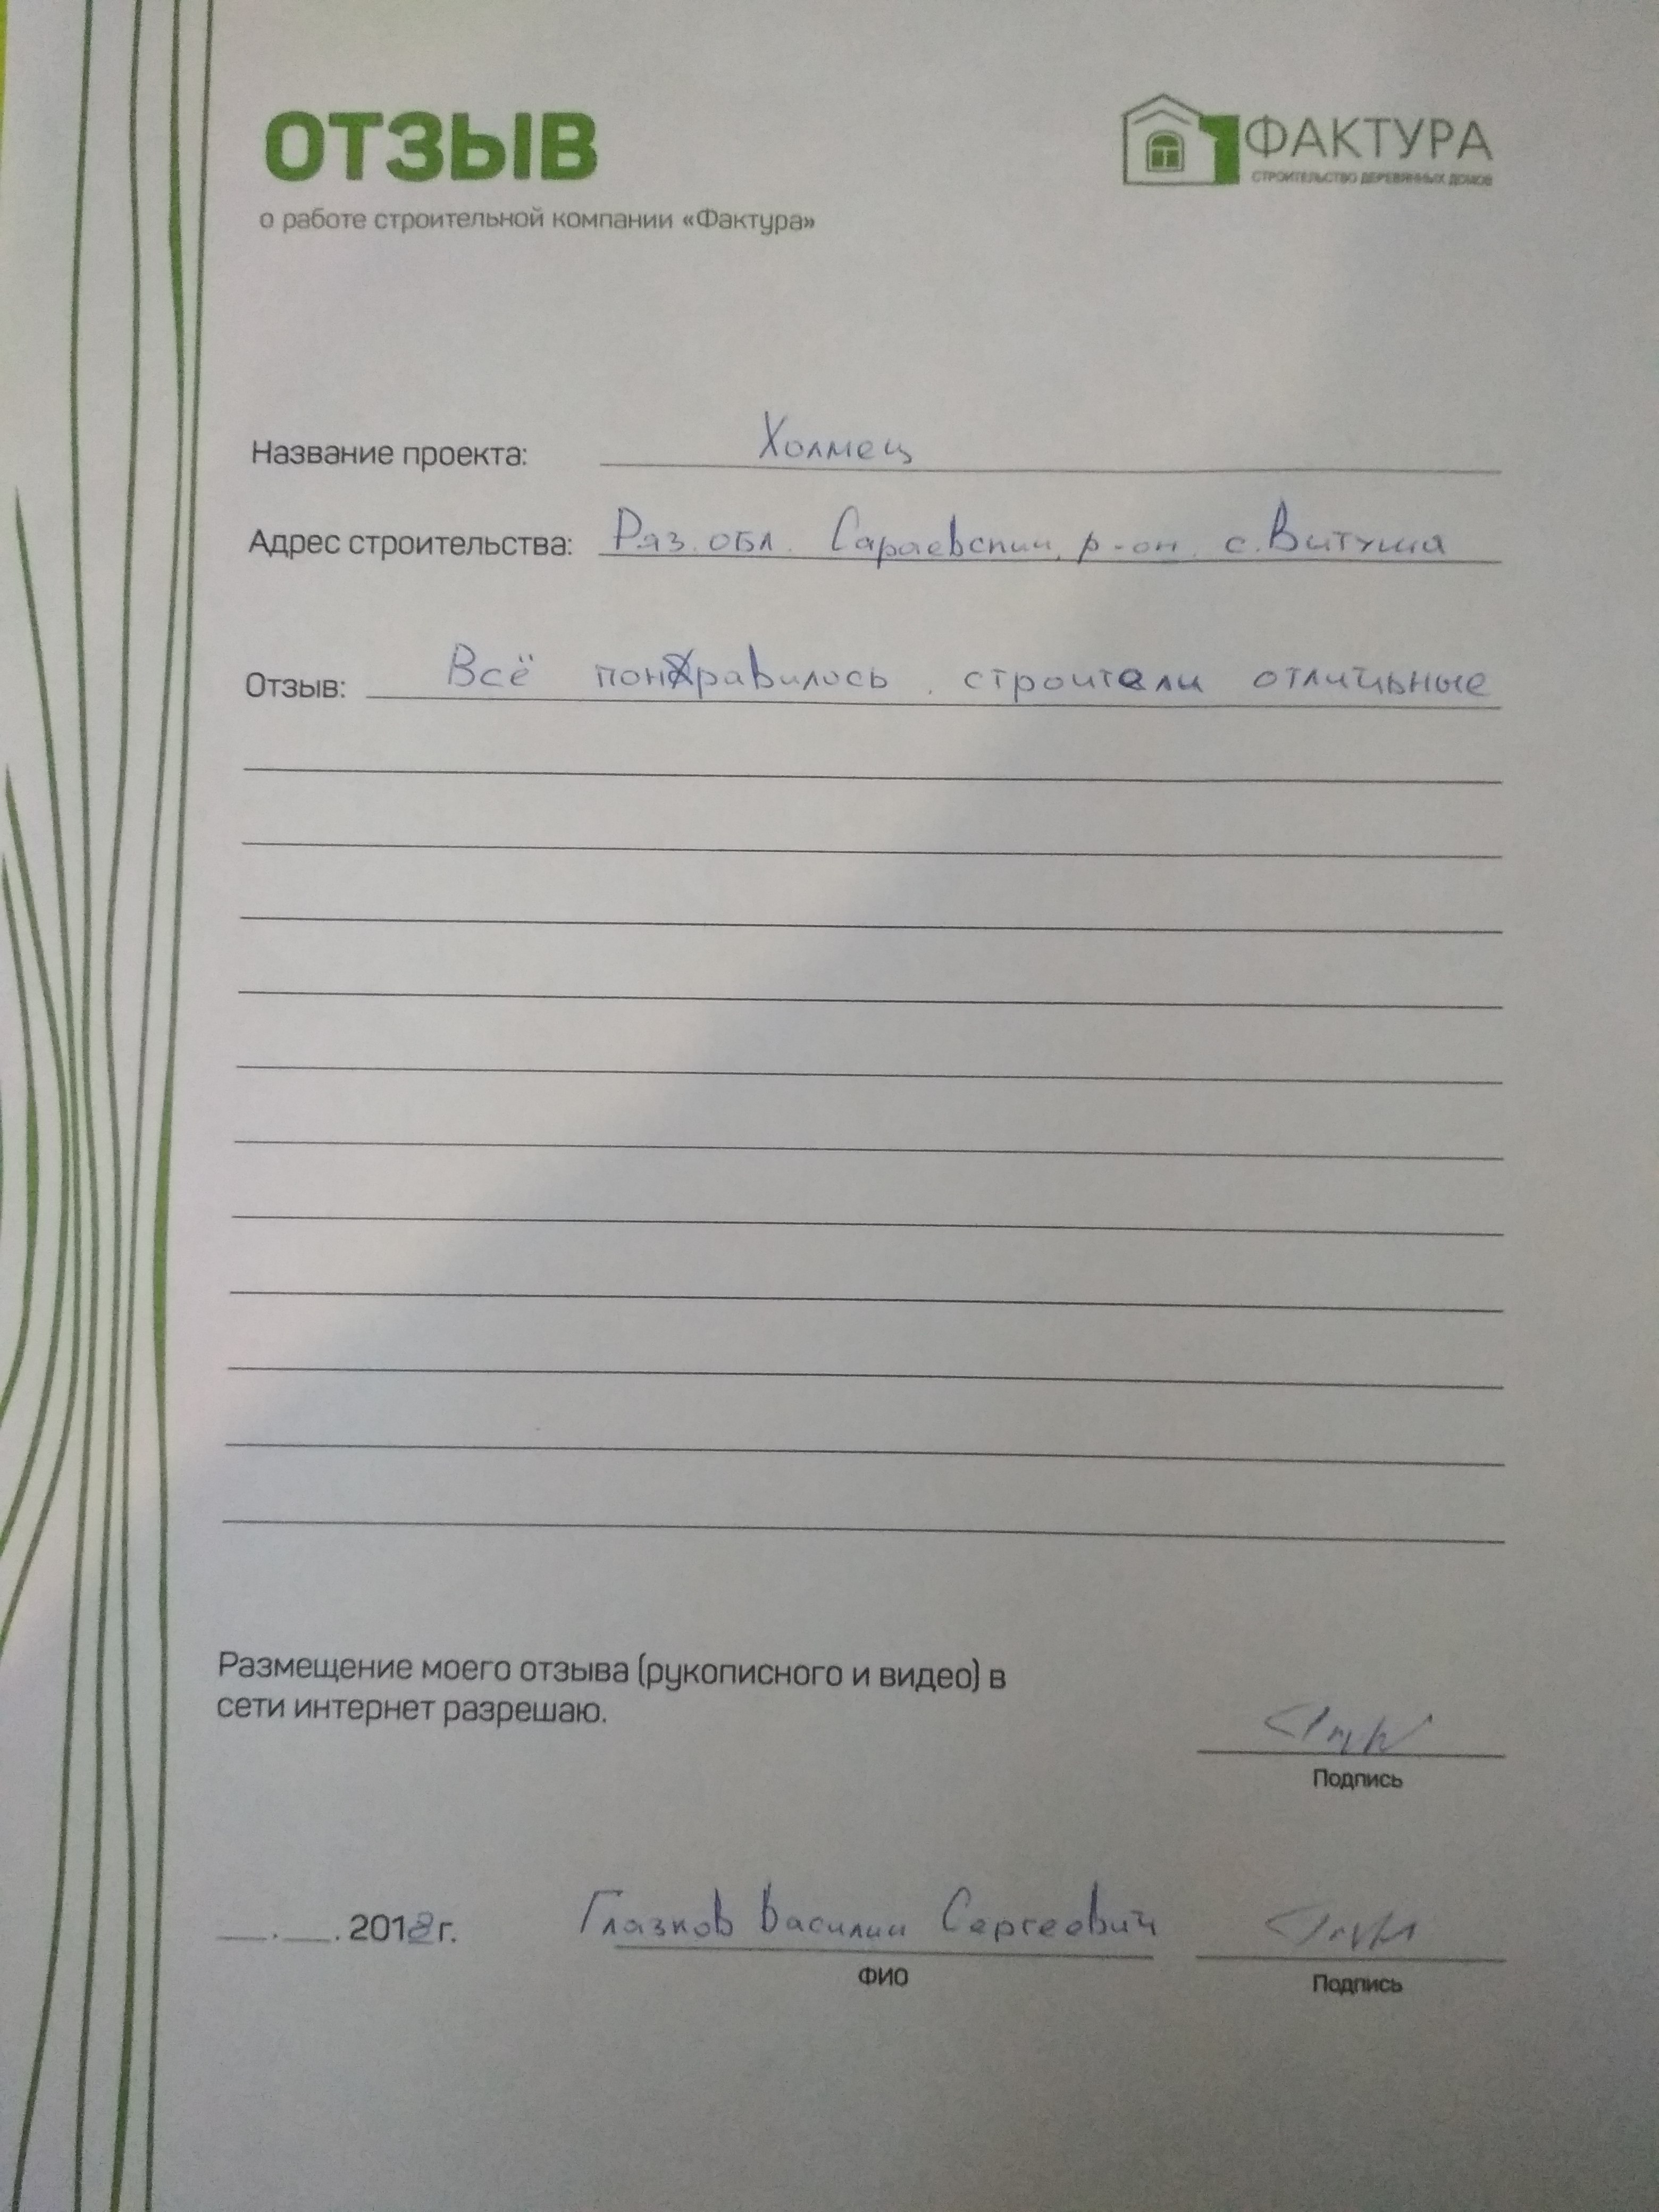 ОТЗЫВ
о работе строительной компании «Фактура»
ФАКТУРА
СТРОИТЕЛЬСТВО ДЕРЕВЯННЫХ ДОМОВ
Название проекта: Холмец
Адрес строительства: Ряз. обл. Сараевский р-он. с. Витуша
Отзыв: Всё понравилось, строители отличьные
Размещение моего отзыва (рукописного и видео) в
сети интернет разрешаю.
Подпись
__.__. 2018г. Глазков Василий Сергеевич
ФИО
Подпись